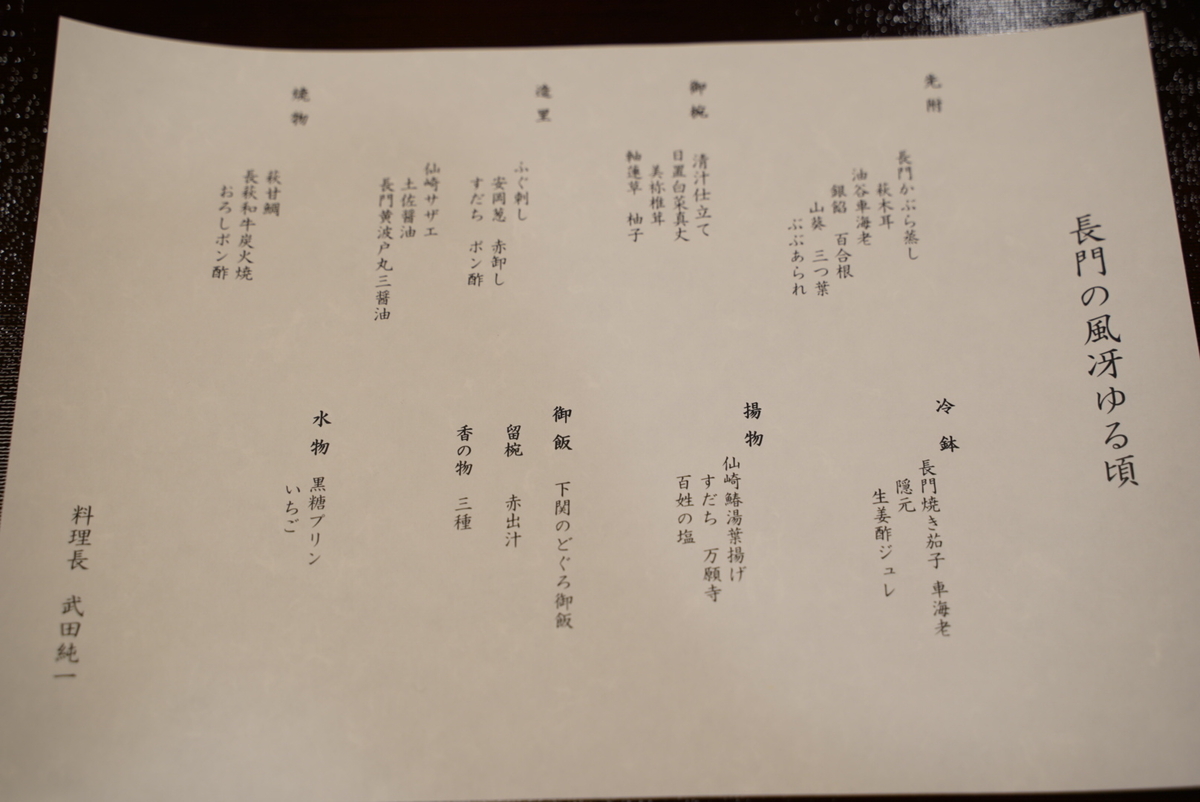 長門の風冴ゆる頃
先附
長門かぶら蒸し
萩木耳
油谷車海老
銀餡 百合根
山葵 三つ葉
ぶぶあられ
御椀
清汁仕立て
日置白菜真丈
美祢椎茸
軸蓮草 柚子
造里
ふぐ刺し
安岡葱 赤卸し
すだち ポン酢
仙崎サザエ
土佐醤油
長門黄波戸丸三醤油
焼物
萩甘鯛
長萩和牛炭火焼
おろしポン酢
冷鉢
長門焼き茄子 車海老
隠元
生姜酢ジュレ
揚物
仙崎鰆湯葉揚げ
すだち 万願寺
百姓の塩
御飯 下関のどぐろ御飯
留椀 赤出汁
香の物 三種
水物 黒糖プリン
いちご
料理長 武田純一